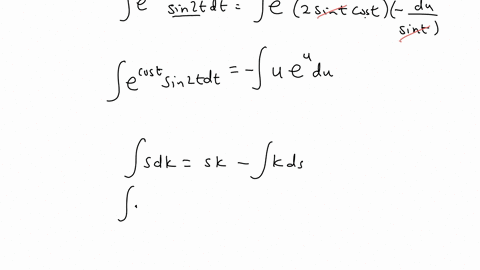 ∫e sin2tdt = ∫e (2sint cost)(-du/sint)
∫e^cost sin2tdt = -∫u e^u du
∫sdk = sk - ∫kds
∫